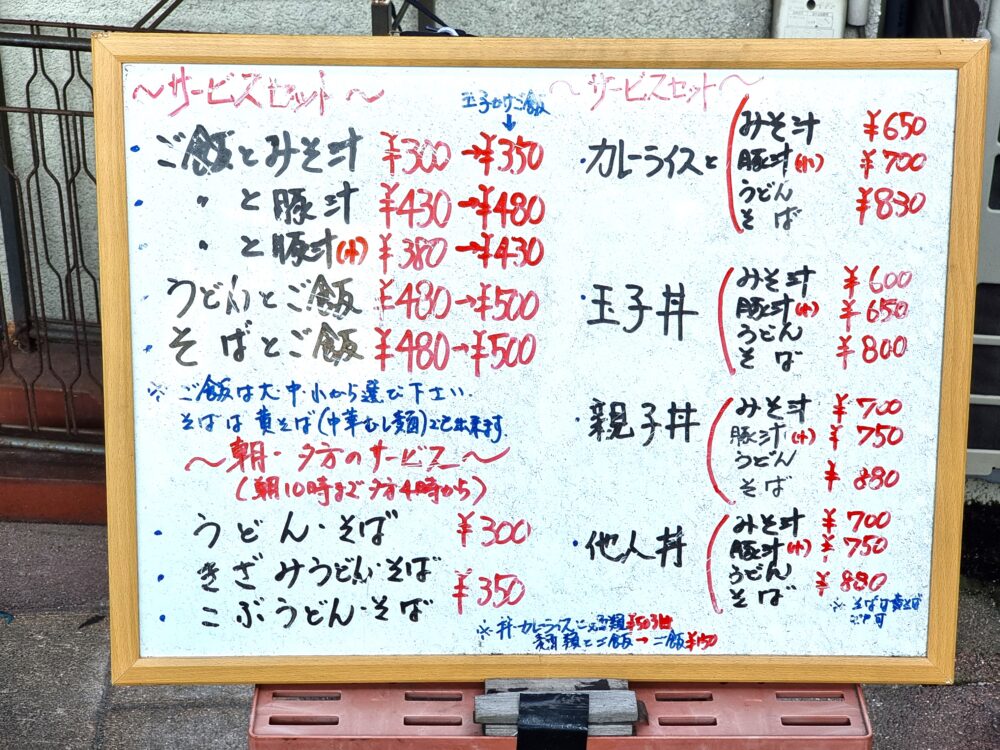 〜サービスセット〜
玉子かけご飯
↓
・ご飯とみそ汁 ¥300→¥350
・〃と豚汁 ¥430→¥480
・〃と豚汁(小) ¥380→¥430
・うどんとご飯 ¥480→¥500
・そばとご飯 ¥480→¥500
※ご飯は大・中・小から選び下さい
そばは黄そば(中華むし麺)でも出来ます
〜朝・夕方のサービス〜
(朝10時まで夕方4時から)
・うどん・そば ¥300
・きざみうどん・そば ¥350
・こぶうどん・そば
〜サービスセット〜
・カレーライスと
みそ汁 ¥650
豚汁(小) ¥700
うどん ¥830
そば
・玉子丼
みそ汁 ¥600
豚汁(小) ¥650
うどん ¥800
そば
・親子丼
みそ汁 ¥700
豚汁(小) ¥750
うどん
そば ¥880
・他人丼
みそ汁 ¥700
豚汁(小) ¥750
うどん ¥880
そば
※そばは黄そば
可
※丼・カレーライス 麺類¥50引
麺類とご飯→ご飯¥150